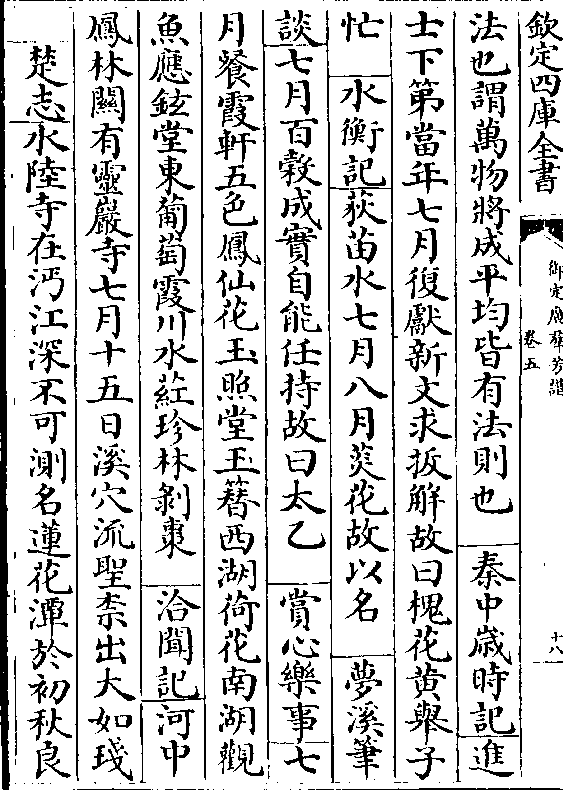 欽定四庫全書
御定廣羣芳譜
卷五
十八
法也謂萬物將成平均皆有法則也 秦中歲時記 進
士下第當年七月復獻新文求拔解故曰槐花黃舉子
忙 水衡記 荻苗水七月八月荻花故以名 夢溪筆
談 七月百穀成實自能任持故曰太乙 賞心樂事 七
月餐霞軒五色鳳仙花玉照堂玉簪西湖荷花南湖觀
魚應鉉堂東葡萄霞川水葒珍林剝棗 洽聞記 河中
鳳林關有靈巖寺七月十五日溪穴流聖柰出大如琖
楚志 水陸寺在沔江深不可測名蓮花潭於初秋良